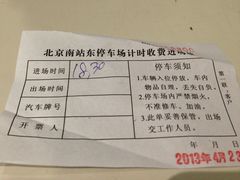 北京南站东停车场计时收费进
进场时间 18,30
出场时间
汽车牌号
开票人
停车须知
1.车辆入位停放，车内
物品自理，丢失自负。
2.停车场内严禁烟火，
不准修车、加油。
3.此单妥善保管，出场
交工作人员。
第一联：客户
年 月 日
2013年4月23